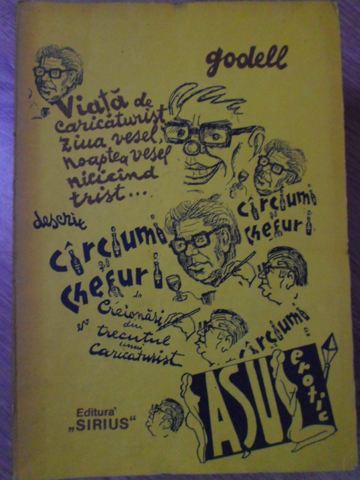 godell
Viaţă de
caricaturist
ziua vesel,
noaptea vesel
nicicînd
trist...
descrie
Cîrciumi
şi
Chefuri
Cîrciumi
şi
Chefuri
de
Creionări
din
trecutul
unui
Caricaturist
Cîrciumi
ASUS
erotic
Editura
„SIRIUS“